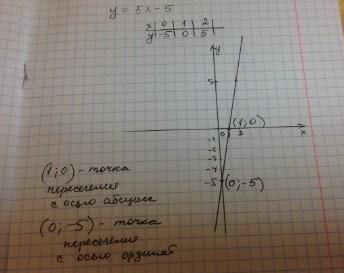 y = 5x-5
x | 0 | 1 | 2
y | -5 | 0 | 5
y
5
(1;0)
0 2 x
-1
-2
-3
-4
-5 (0;-5)
(1;0) - точка
пересечения
с осью абсцисс
(0;-5) - точка
пересечения
с осью ординат